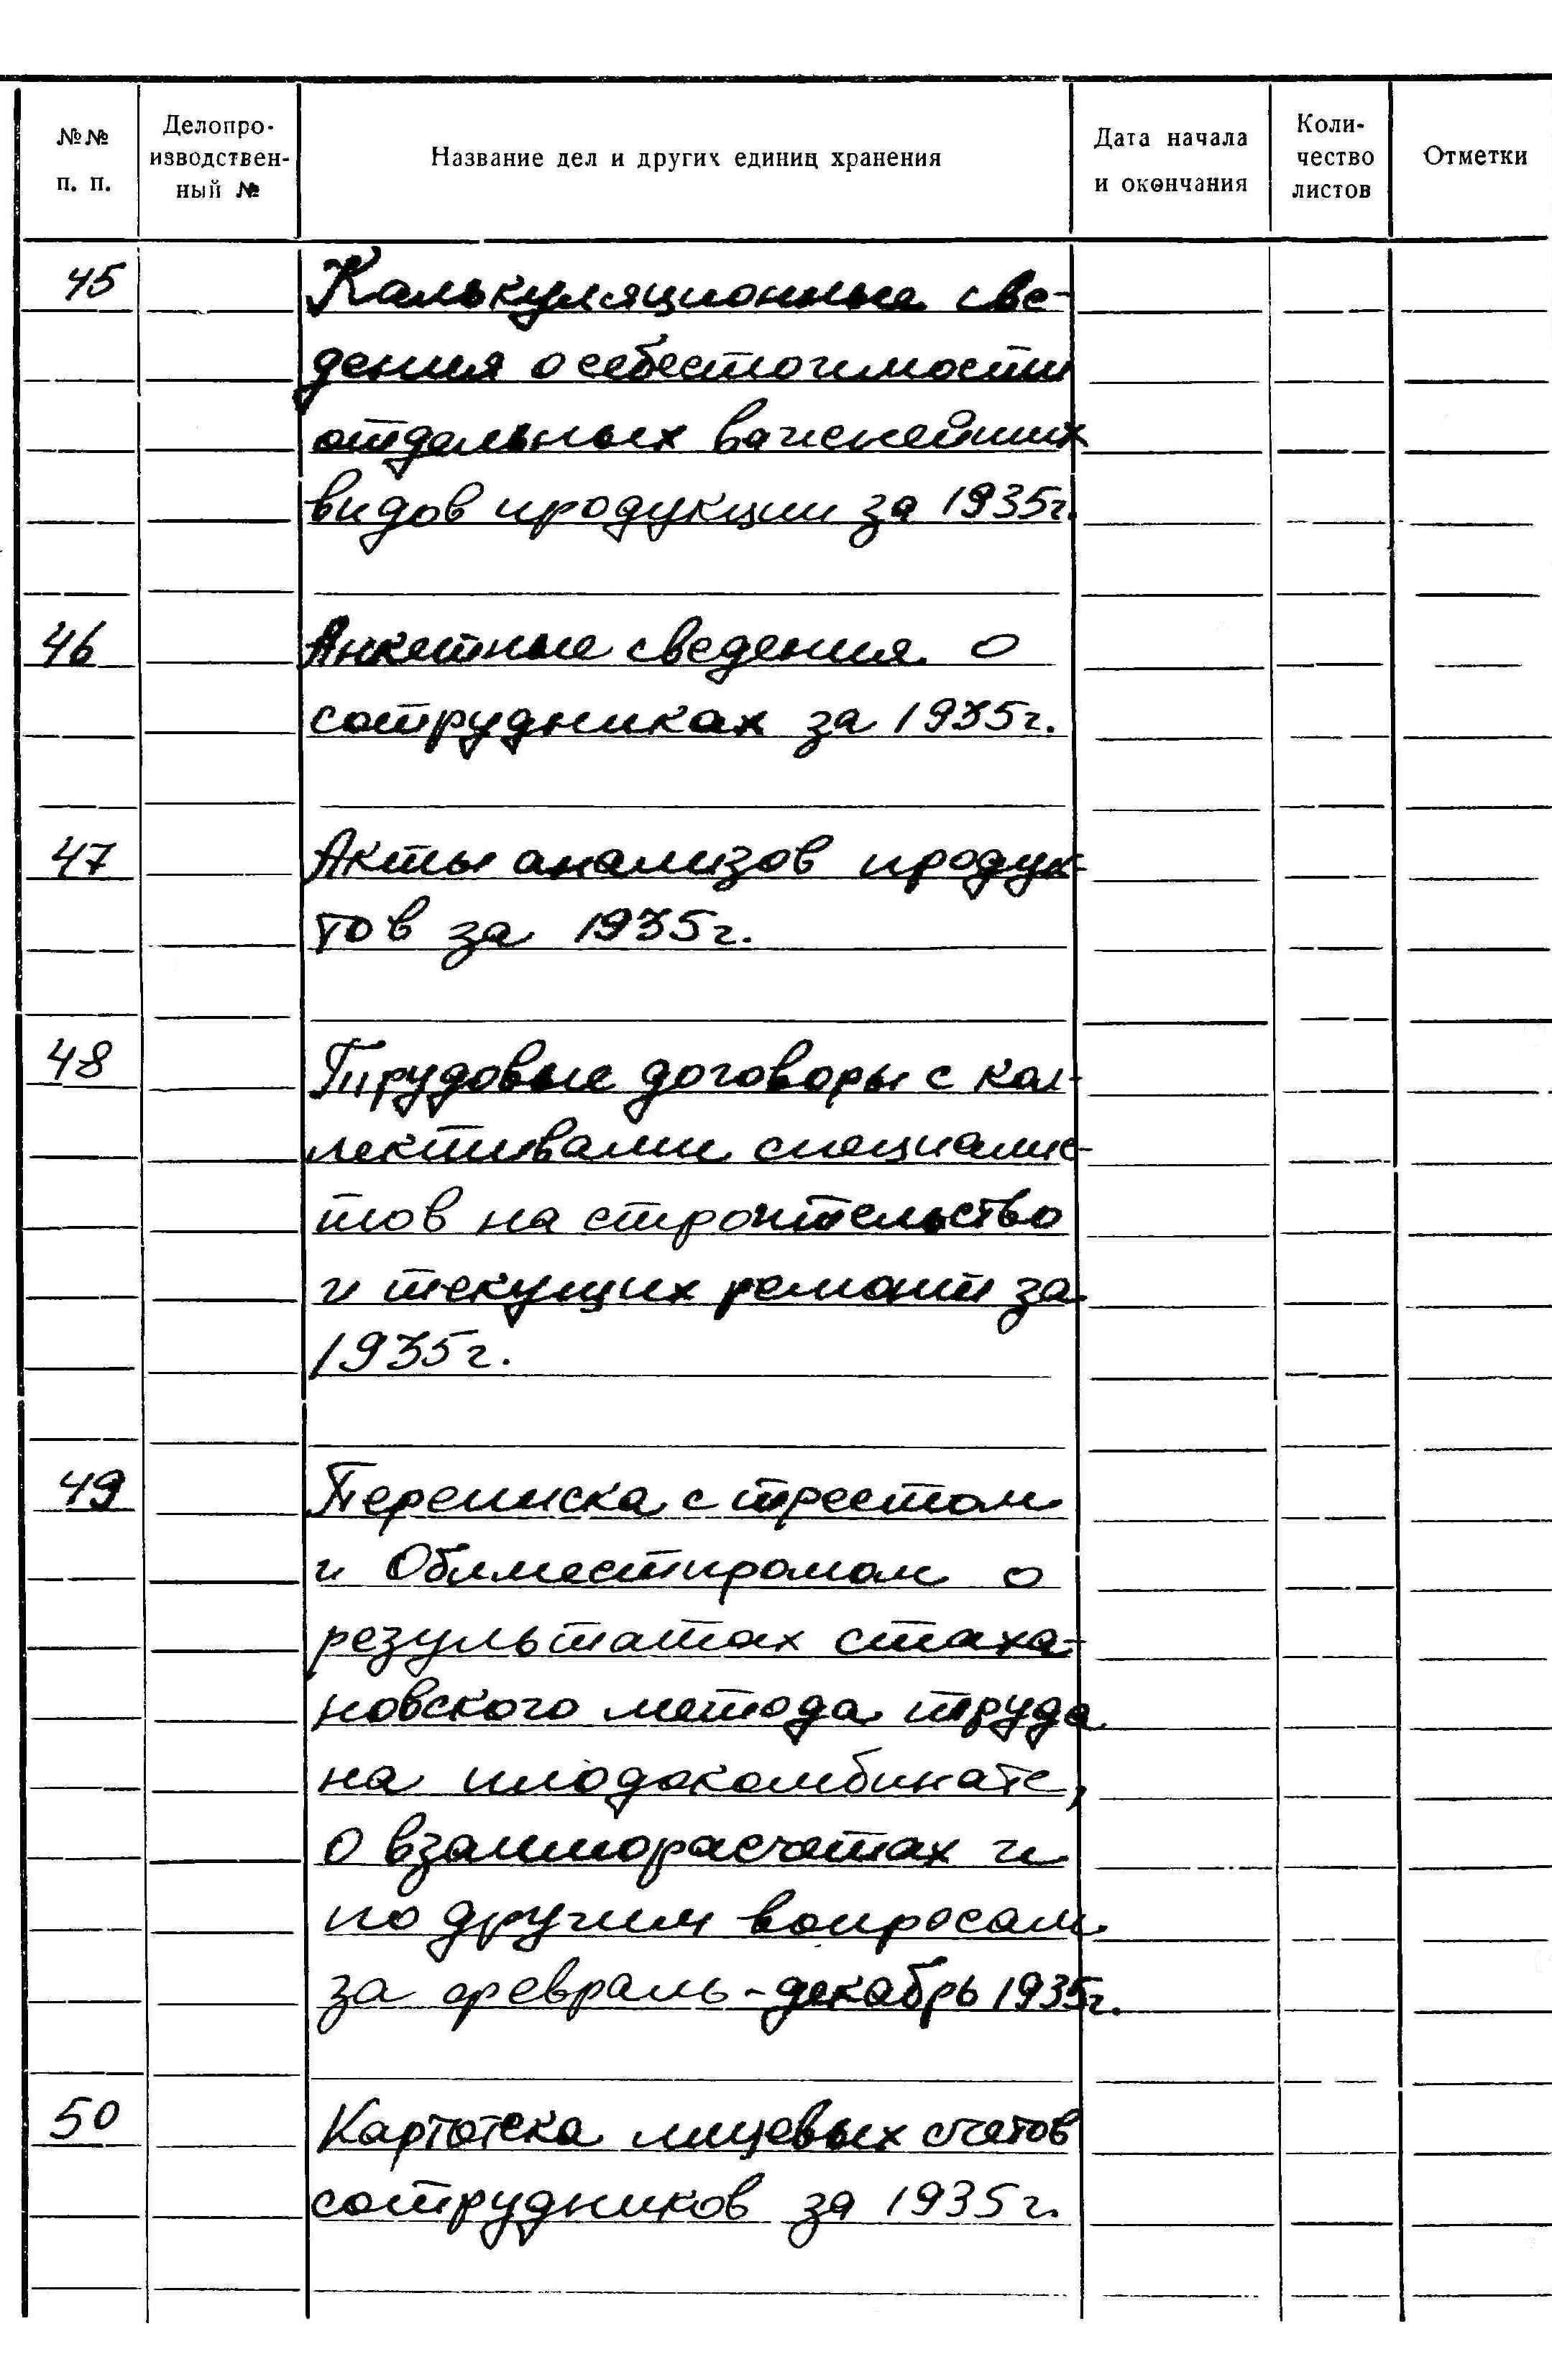 №№ п. п.
Делопро-
изводствен-
ный №
Название дел и других единиц хранения
Дата начала
и окончания
Коли-
чество
листов
Отметки
45 Калькуляционные све-
дения о себестоимости
отдельных важнейших
видов продукции за 1935г.
46 Анкетные сведения о
сотрудниках за 1935г.
47 Акты анализов продук-
тов за 1935г.
48 Трудовые договоры с кол-
лективами специалис-
тов на строительство
и текущих ремонт за
1935г.
49 Переписка с трестом
и Облместпромом о
результатах стаха-
новского метода труда
на плодокомбинате,
о взаиморасчетах и
по другим вопросам
за февраль-декабрь 1935г.
50 Картотека лицевых счетов
сотрудников за 1935г.